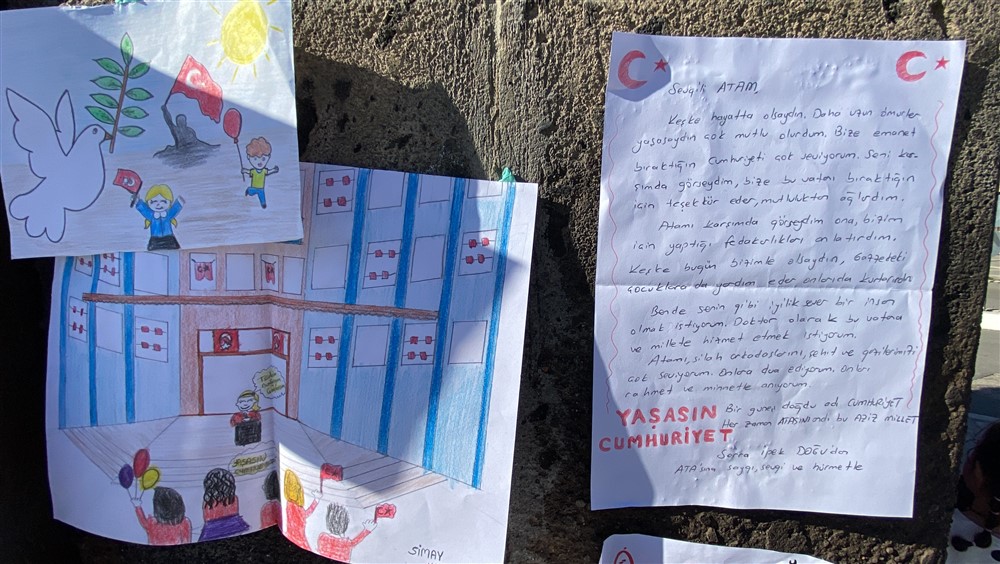 Sevgili ATAM,
Keşke hayatta olsaydın. Daha uzun ömürler
yaşasaydın çok mutlu olurdum. Bize emanet
bıraktığın Cumhuriyeti çok seviyorum. Seni kar-
şımda görseydim, bize bu vatanı bıraktığın
için teşekkür eder, mutluluktan ağlardım.
Atamı karşımda görseydim ona, bizim
için yaptığı fedakarlıkları anlatırdım.
Keşke bugün bizimle olsaydın, Gazzedeki
çocuklara da yardım eder onlarıda
Bende senin gibi iyilik sever bir insan
olmak istiyorum. Doktor olarak bu vatana
ve millete hizmet etmek istiyorum.
Atamı, silah arkadaşlarını, şehit ve gazilerimizi
çok seviyorum. Onlara dua ediyorum. Onları
rahmet ve minnetle anıyorum.
YAŞASIN
CUMHURİYET
Bir güneş doğdu adı CUMHURİYET
Her zaman ATASINI andı bu AZİZ MİLLET
İpek DOĞU'dan
ATA'sına saygı, sevgi ve hürmetle
YAŞASIN
SİMAY